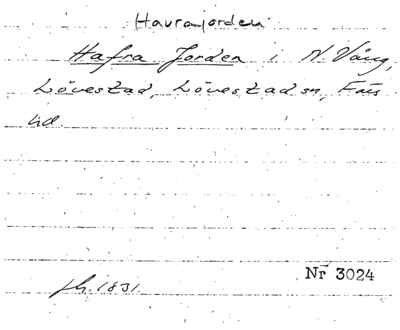 Havrajorden.
Hafra Jorden i N. Vång,
Lövestad, Lövestad sn, Färs
hd.
sk. 1831.
Nr 3024